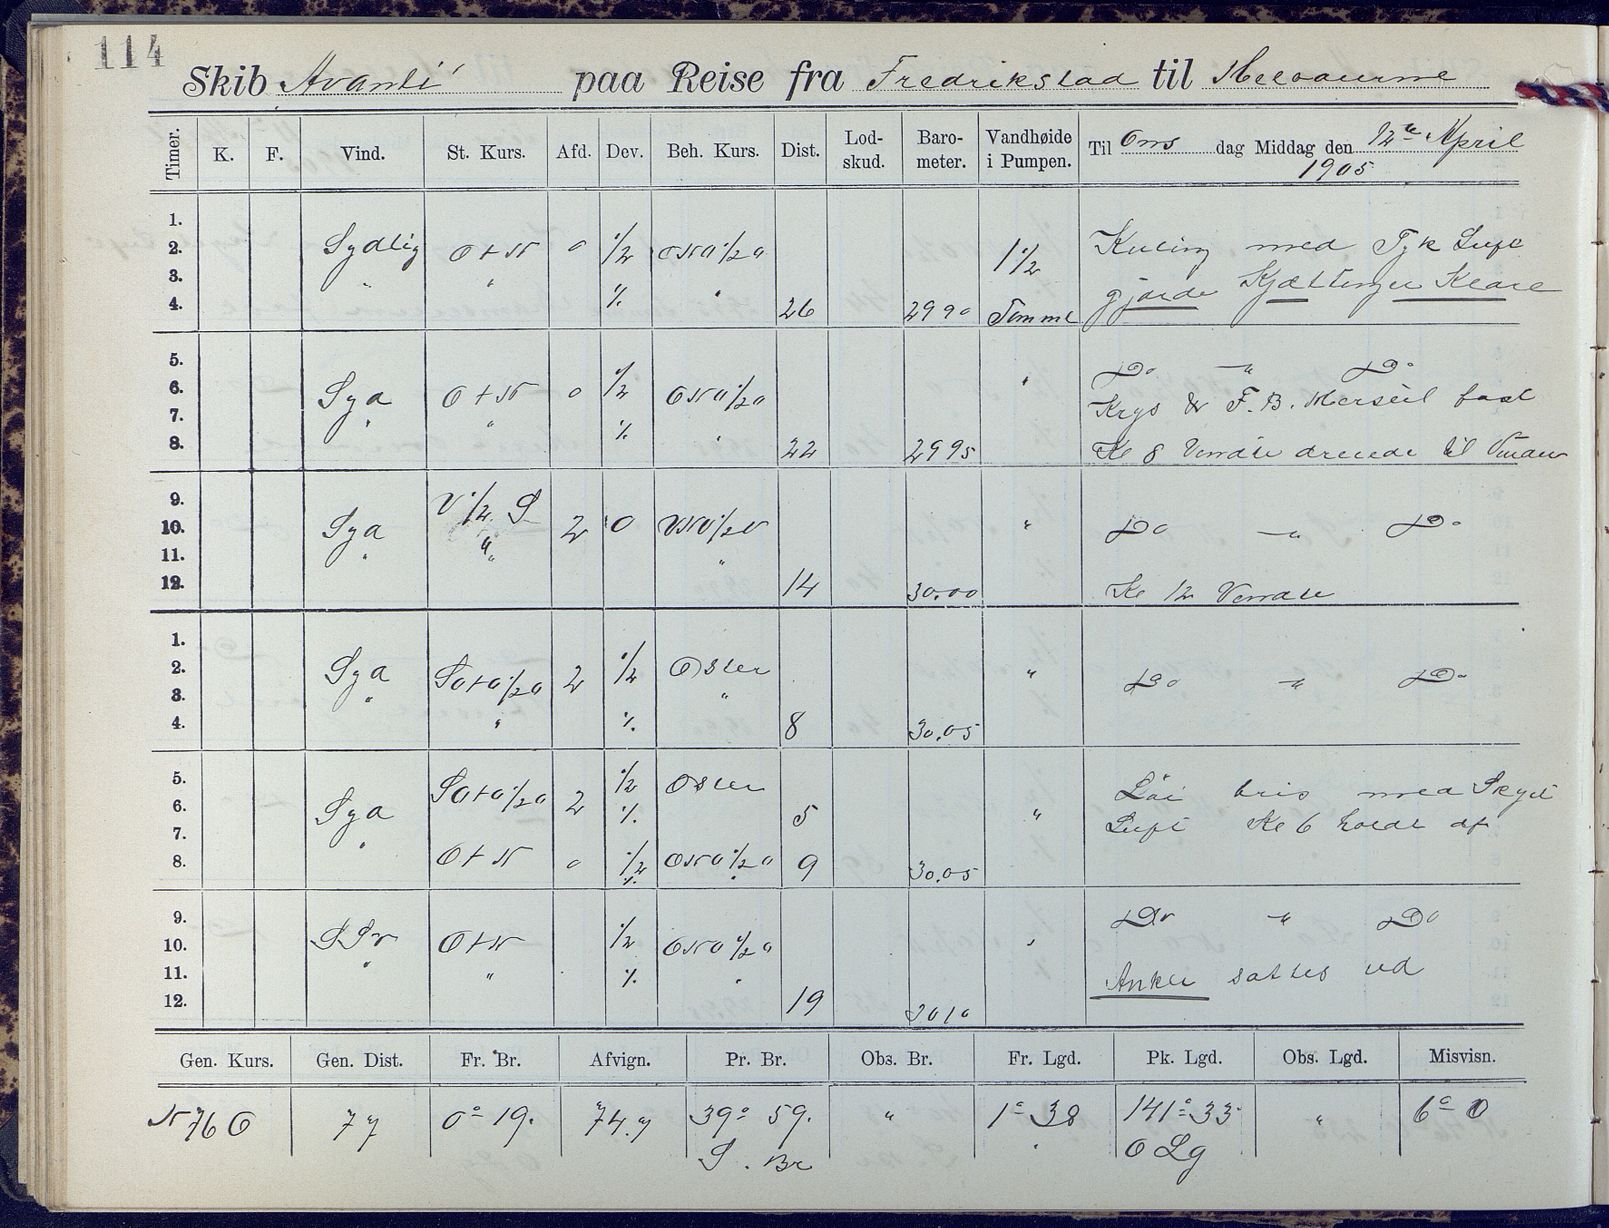 114
Skib Avanti paa Reise fra Fredrikstad til Melbourne
Timer. K. F. Vind. St. Kurs. Afd. Dev. Beh. Kurs. Dist. Lod-skud. Baro-meter. Vandhøide i Pumpen. Til Ons dag Middag den 12te April 1905
1.
2. Sydlig O t N 0 1/2 ONO 1/2 O 1 1/2 Kuling med Tyk Luft
3. " " "
4. 26 2990 Tomme gjorde Kjættinger Klare
5. Do " Do
6. Syd O t N 0 1/2 ONO 1/2 O " Krys & F. B. Merseil fast
7. " " "
8. 22 2995 Kl 8 Vendte dreiede til Vinden
9. V 1/2 S
10. Syd " 2 0 VNV 1/2 V " Do " Do
11. " " "
12. 14 30.00 Kl 12 Vendte
1.
2. Syd SO t O 1/2 O 2 1/2 Oster " Do " Do
3. " "
4. " 8 30.05
5. SO t O 1/2 O 1/2 Oster Løi bris med Skyet
6. Syd 2 5 " Luft Kl 6 holdt af
7. "
8. O t N 0 1/2 ONO 1/2 O 9 30.05
9. Do " Do
10. SSV O t N 1/2 ONO 1/2 O "
11. " " " Anker sattes ud
12. 19 3010
Gen. Kurs. Gen. Dist. Fr. Br. Afvign. Pr. Br. Obs. Br. Fr. Lgd. Pk. Lgd. Obs. Lgd. Misvisn.
N 76 O 77 0° 19. 74.7 39° 59. " 1° 38 141° 33 " 6° O
S. Br O Lg